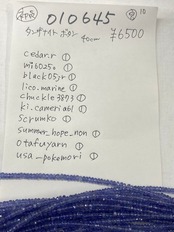 010645 10
タンザナイト ボタン 40cm ¥6500
cedar.r ①
mi6025o ①
black05jr ①
lico.marine ①
chuckle3873 ①
ki.cameria61 ①
Scrumko ①
summer_hope_non ①
otafuyarn ①
usa_pokemori ①